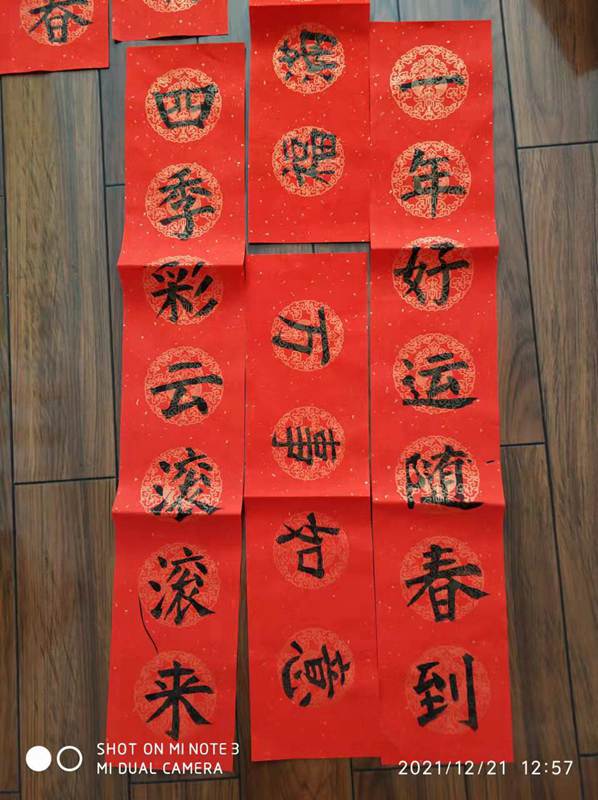 春
一年好运随春到
四季彩云滚滚来
福满
万事如意
SHOT ON MI NOTE 3
MI DUAL CAMERA
2021/12/21 12:57